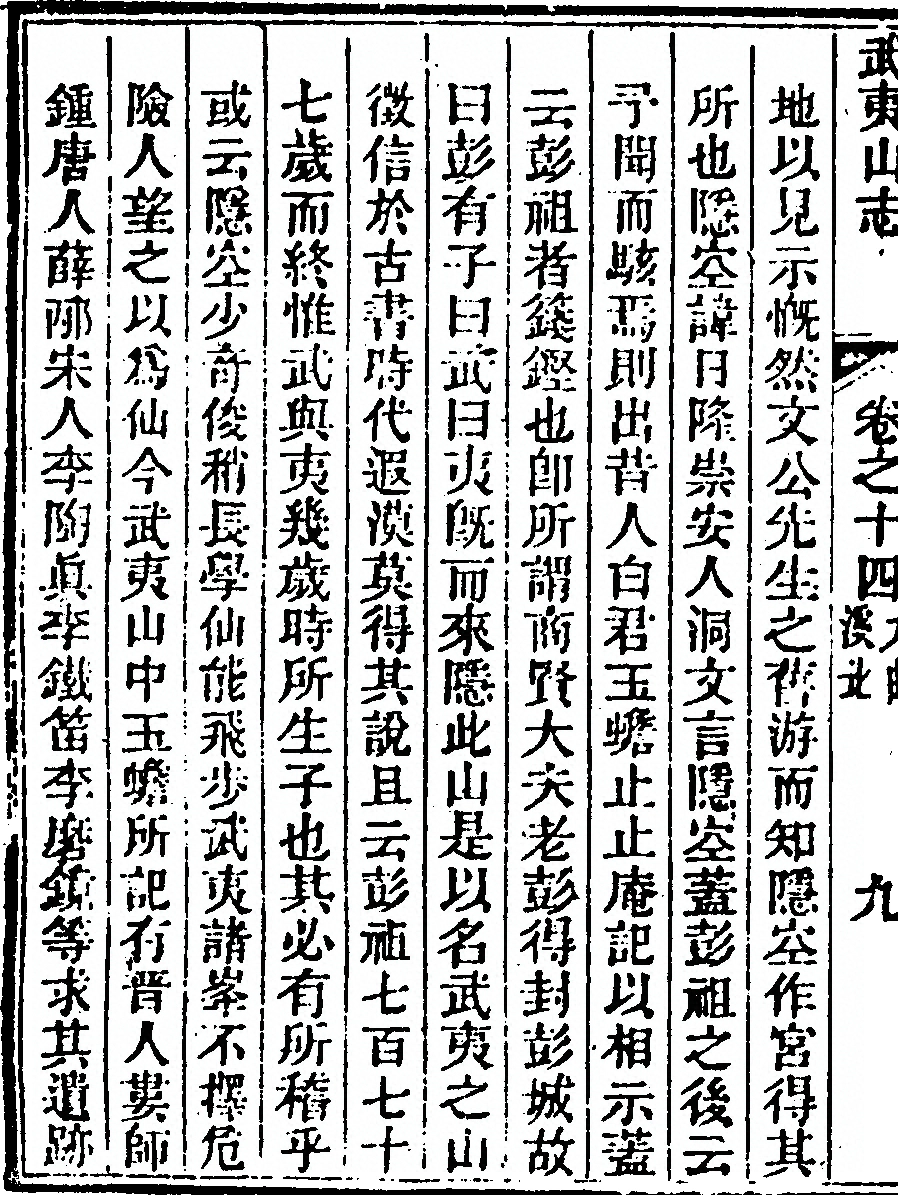 武夷山志 卷之十四 九曲 溪北 九
地以見示慨然文公先生之舊游而知隱空作宮得其
所也隱空諱日隆崇安人洞文言隱空蓋彭祖之後云
予聞而駭焉則出昔人白君玉蟾止止庵記以相示蓋
云彭祖者籛鏗也卽所謂商賢大夫老彭得封彭城故
曰彭有子曰武曰夷旣而來隱此山是以名武夷之山
徵信於古書時代遐漠莫得其說且云彭祖七百七十
七歲而終惟武與夷幾歲時所生子也其必有所稽乎
或云隱空少奇俊稍長學仙能飛步武夷諸峯不擇危
險人望之以爲仙今武夷山中玉蟾所記有晋人婁師
鍾唐人薛邴宋人李陶眞李鐵笛李磨鏡等求其遺跡